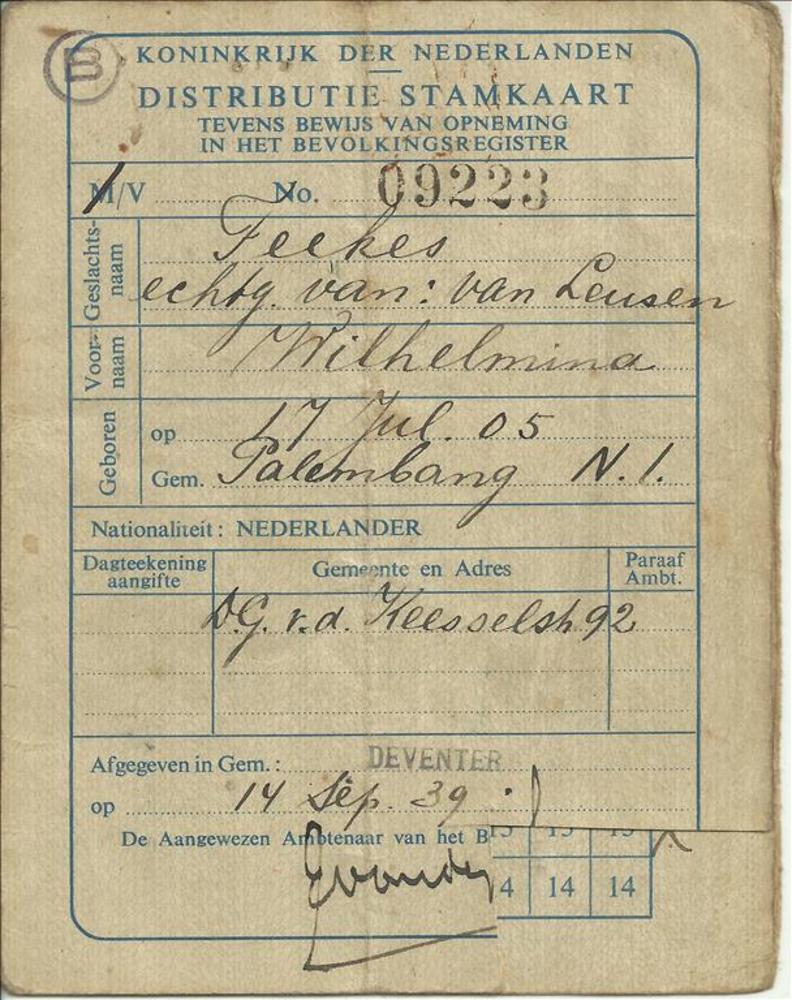 B
KONINKRIJK DER NEDERLANDEN
DISTRIBUTIE STAMKAART
TEVENS BEWIJS VAN OPNEMING
IN HET BEVOLKINGSREGISTER
M/V No. 09223
Geslachtsnaam Feekes
echtg. van: van Leusen
Voornaam Wilhelmina
Geboren op 17 Jul. 05
Gem. Palembang N.I.
Nationaliteit: NEDERLANDER
Dagteekening aangifte Gemeente en Adres Paraaf Ambt.
D.G. v.d. Keesselstr 92
Afgegeven in Gem.: DEVENTER
op 14 Sep. 39
De Aangewezen Ambtenaar van het B
15 15 15
4 14 14